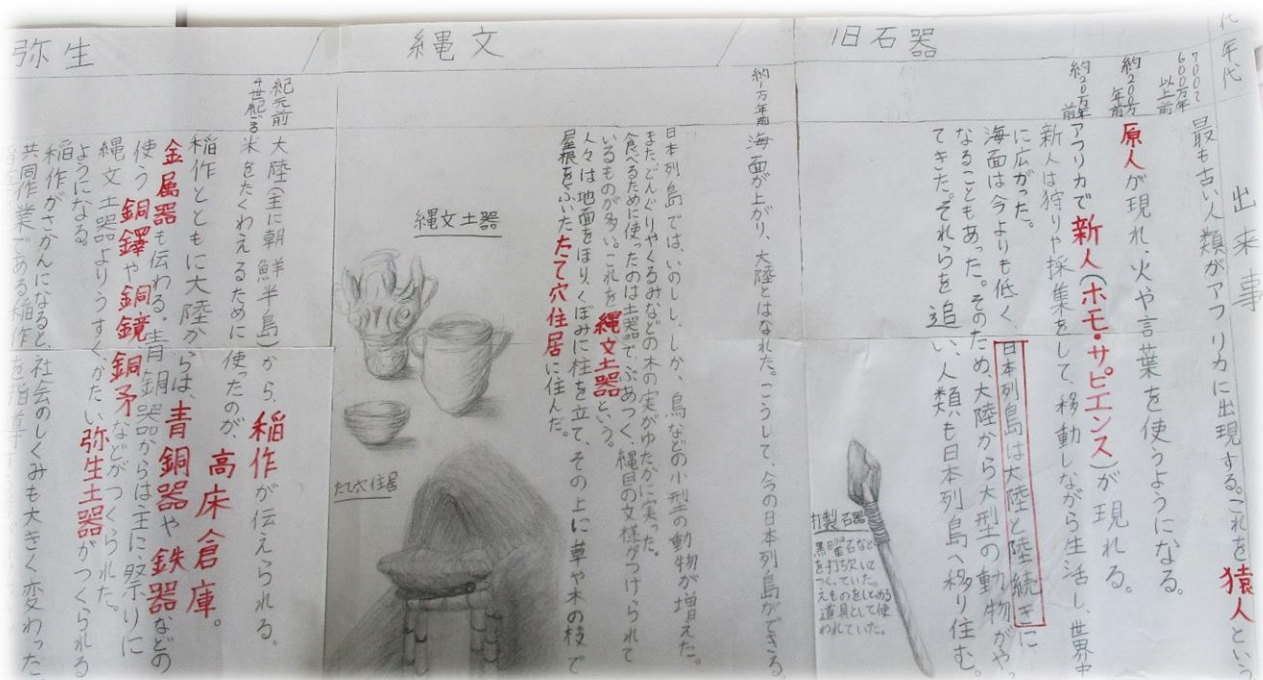 年代
出来事
旧石器
700〜
600万年
以上前
最も古い人類がアフリカに出現する。これを猿人という
約200万
年前
原人が現れ、火や言葉を使うようになる。
約20万年
前
アフリカで新人(ホモ・サピエンス)が現れる。
新人は狩りや採集をして、移動しながら生活し、世界中
に広がった。
海面は今よりも低く、日本列島は大陸と陸続きに
なることもあった。そのため、大陸から大型の動物がやっ
てきた。それらを追い、人類も日本列島へ移り住む。
打製石器
黒曜石など
を打ち欠いて
つくっていた。
えものをしとめる
道具として使
われていた。
縄文
約1万年前
海面が上がり、大陸とはなれた。こうして、今の日本列島ができる
日本列島では、いのしし、しか、鳥などの小型の動物が増えた。
また、どんぐりやくるみなどの木の実がゆたかに実った。
食べるために使ったのは土器で、ぶあつく、縄目の文様がつけられて
いるものが多い。これを縄文土器という。
人々は地面をほり、くぼみに柱を立て、その上に草や木の枝で
屋根をふいたたて穴住居に住んだ。
縄文土器
たて穴住居
弥生
紀元前
4世紀ごろ
大陸(主に朝鮮半島)から、稲作が伝えられる。
米をたくわえるために使ったのが、高床倉庫。
稲作とともに大陸からは、青銅器や鉄器などの
金属器も伝わる。青銅器からは主に祭りに
使う銅鐸や銅鏡、銅矛などがつくられた。
縄文土器よりうすく、かたい弥生土器がつくられる
ようになる。
稲作がさかんになると、社会のしくみも大きく変わった。
共同作業である稲作を指導す